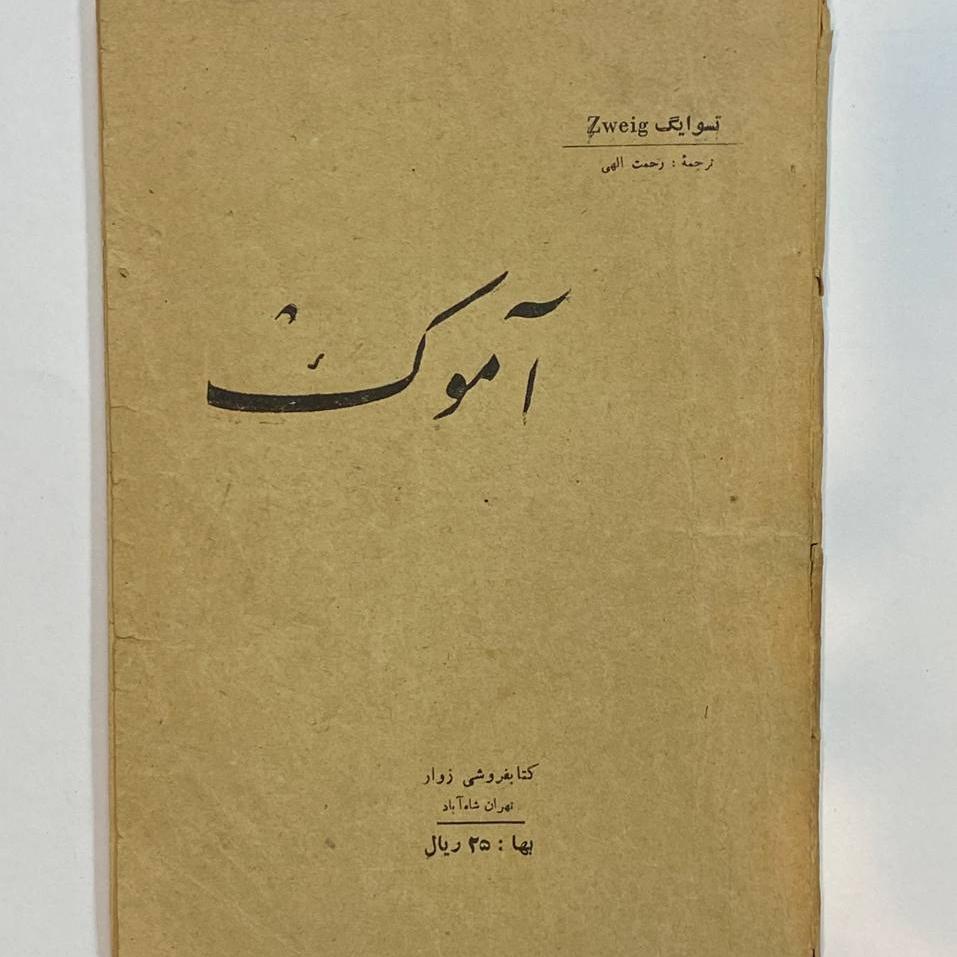 تسوایگ Zweig
ترجمهٔ : رحمت الهی
آموک
کتابفروشی زوار
تهران شاه‌آباد
بها : ۲۵ ریال